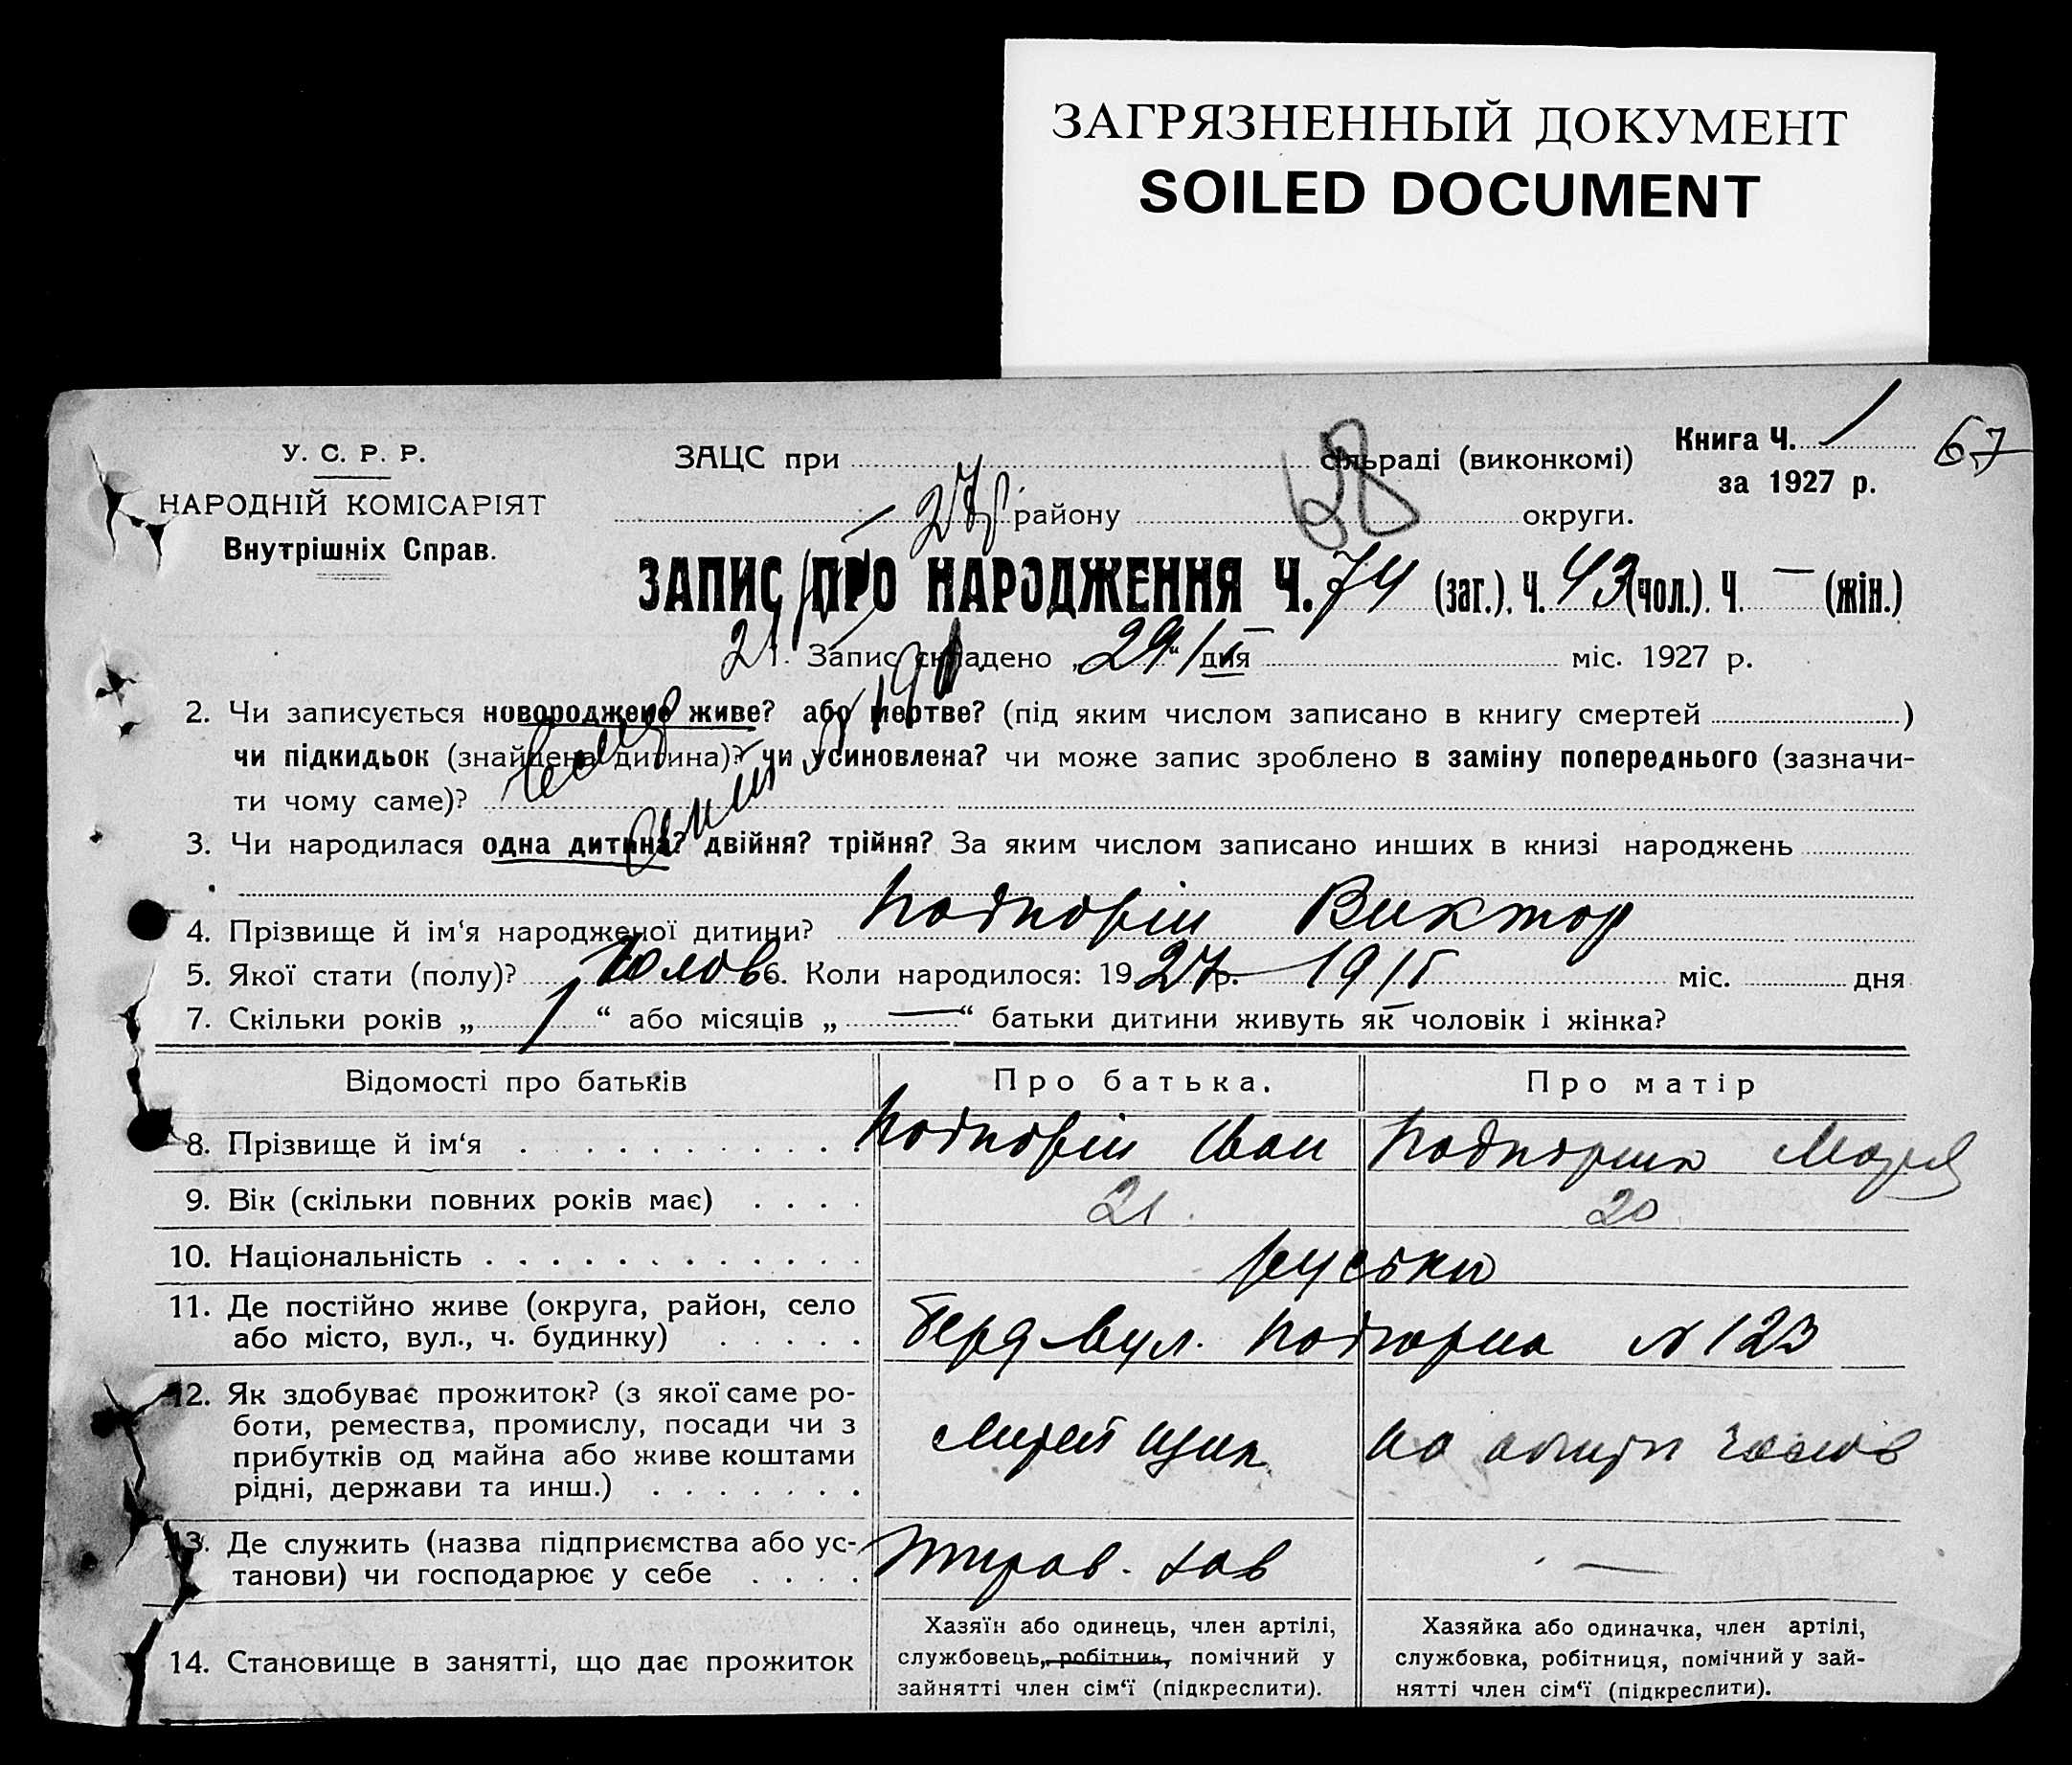 ЗАГРЯЗНЕННЫЙ ДОКУМЕНТ
SOILED DOCUMENT
У. С. Р. Р.
НАРОДНІЙ КОМІСАРІЯТ
Внутрішніх Справ.
ЗАЦС при сільраді (виконкомі)
району округи.
Книга Ч. 1
за 1927 р.
67
ЗАПИС ПРО НАРОДЖЕННЯ Ч. 74 (заг.). Ч. 43 (чол.). Ч. — (жін.)
1. Запис складено „29/I“ дня міс. 1927 р.
2. Чи записується новороджене живе? або мертве? (під яким числом записано в книгу смертей )
чи підкидьок (знайдена дитина)? чи усиновлена? чи може запис зроблено в заміну попереднього (зазначи-
ти чому саме)?
3. Чи народилася одна дитина? двійня? трійня? За яким числом записано инших в книзі народжень
4. Прізвище й ім‘я народженої дитини? Подпорін Виктор
5. Якої стати (полу)? Чолов 6. Коли народилося: 1927 р. 19/I міс. дня
7. Скільки років „1“ або місяців „—“ батьки дитини живуть як чоловік і жінка?
Відомості про батьків
Про батька.
Про матір
8. Прізвище й ім‘я Подпорін Иван Подпорина Мария
9. Вік (скільки повних років має) 21. 20
10. Національність руськи
11. Де постійно живе (округа, район, село
або місто, вул., ч. будинку)
Берд вул. Подгорна N 123
12. Як здобуває прожиток? (з якої саме ро-
боти, ремества, промислу, посади чи з
прибутків од майна або живе коштами
рідні, держави та инш.)
13. Де служить (назва підприємства або ус-
танови) чи господарює у себе
—
14. Становище в занятті, що дає прожиток
Хазяїн або одинець, член артілі,
службовець, робітник, помічний у
зайнятті член сім‘ї (підкреслити).
Хазяйка або одиначка, член артілі,
службовка, робітниця, помічний у зай-
нятті член сім‘ї (підкреслити).